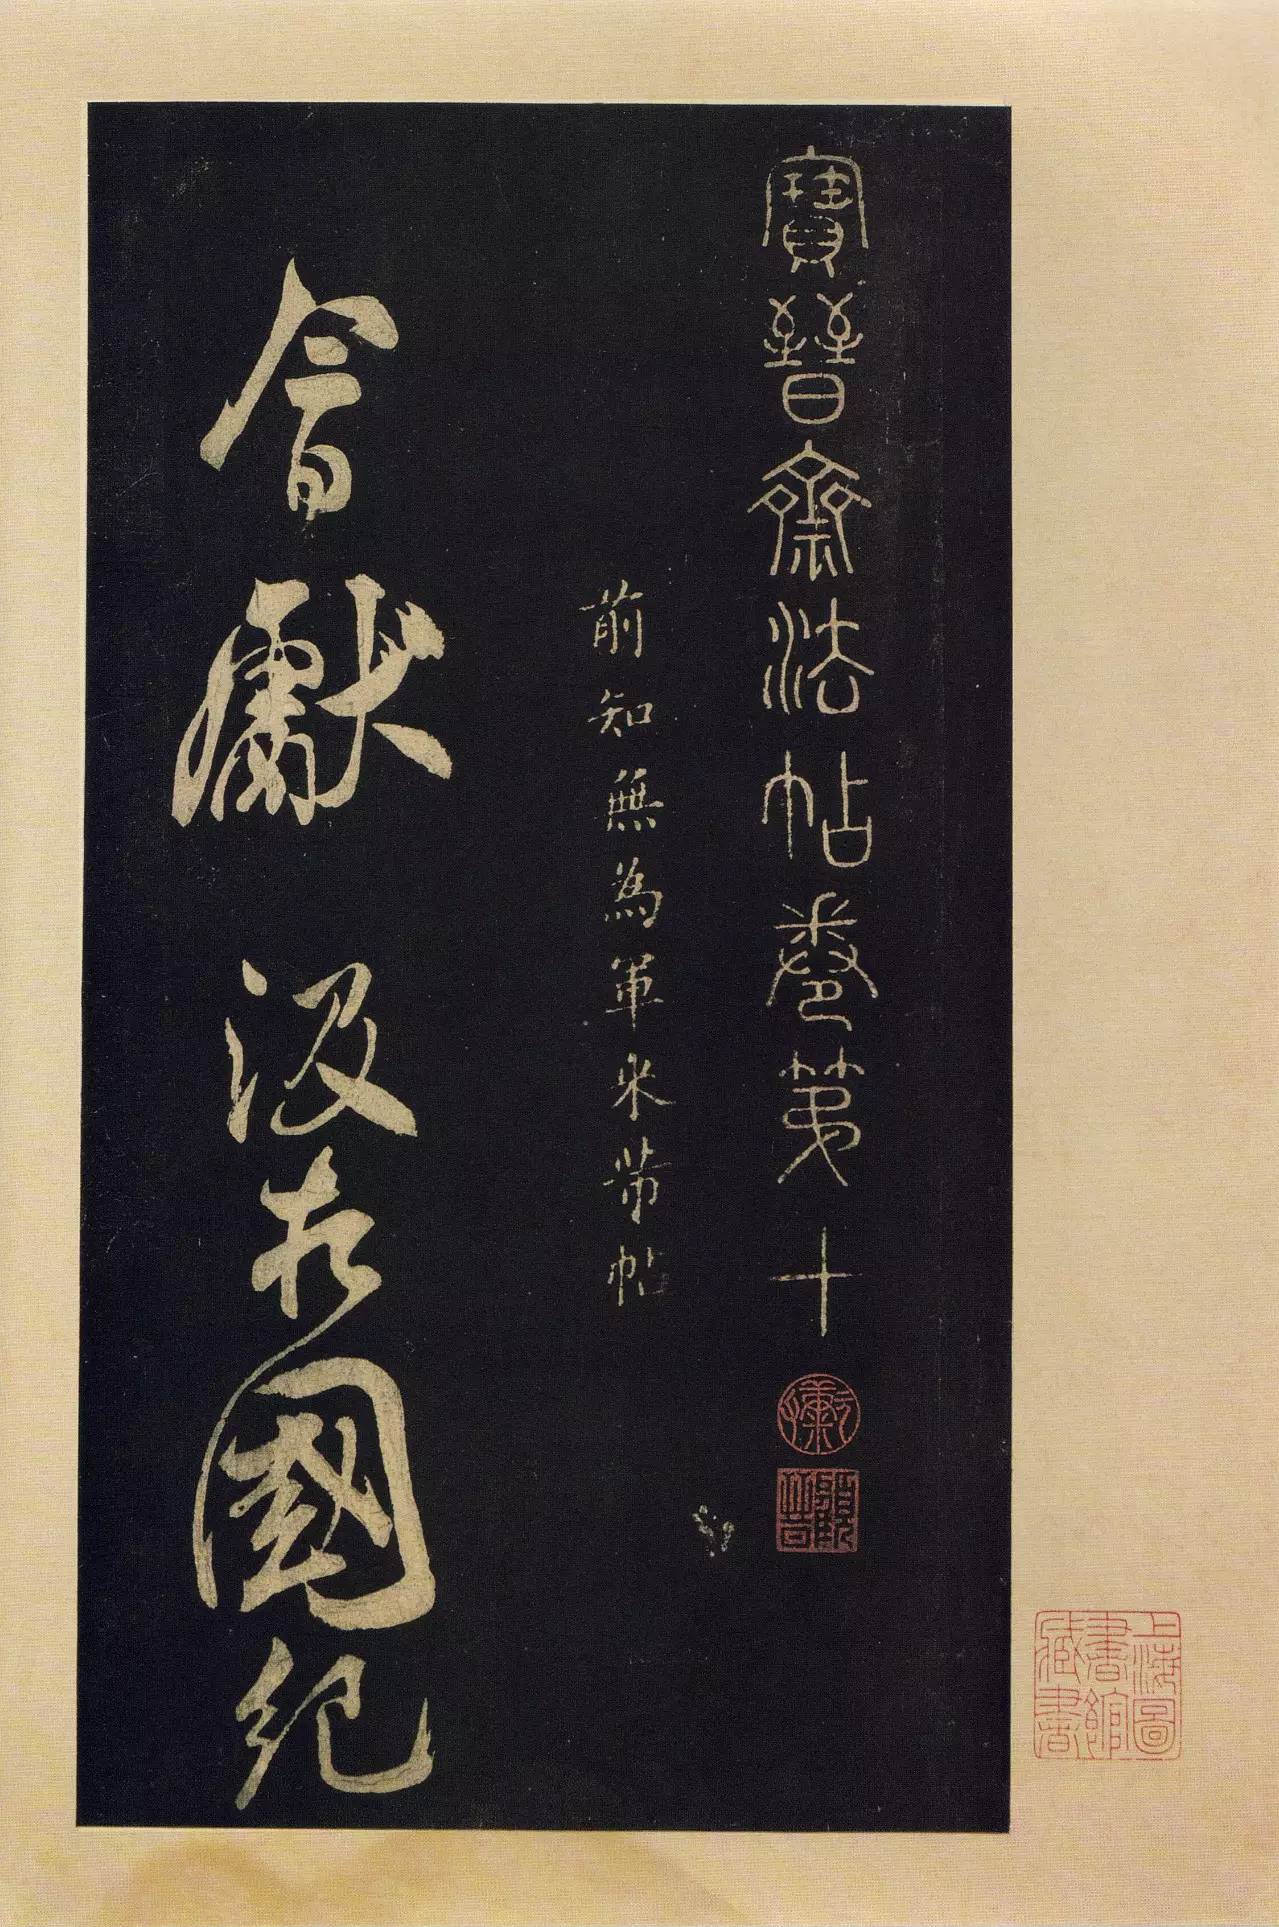 寶晉齋法帖卷第十
前知無為軍米芾帖
會獻國紀
上海圖書館藏書